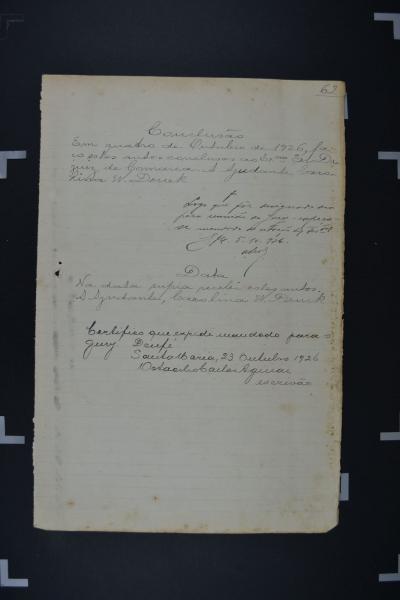 63
Conclusão
Em quatro de Outubro de 1926, fa-
ço estes autos conclusos ao Exmo Snr Dr
Juiz de Comarca. A Ajudante Caro-
lina W. Denck
Logo que fôr designado dia
para reunião do Jury
se mandado
5. 10. 926.
Data
Na data supra recebi estes autos.
A Ajudante, Carolina W. Denck
Certifico que expedi mandado para o
Jury. Dou fé
Santa Maria, 23 Outubro 1926
Aguiar
escrivão